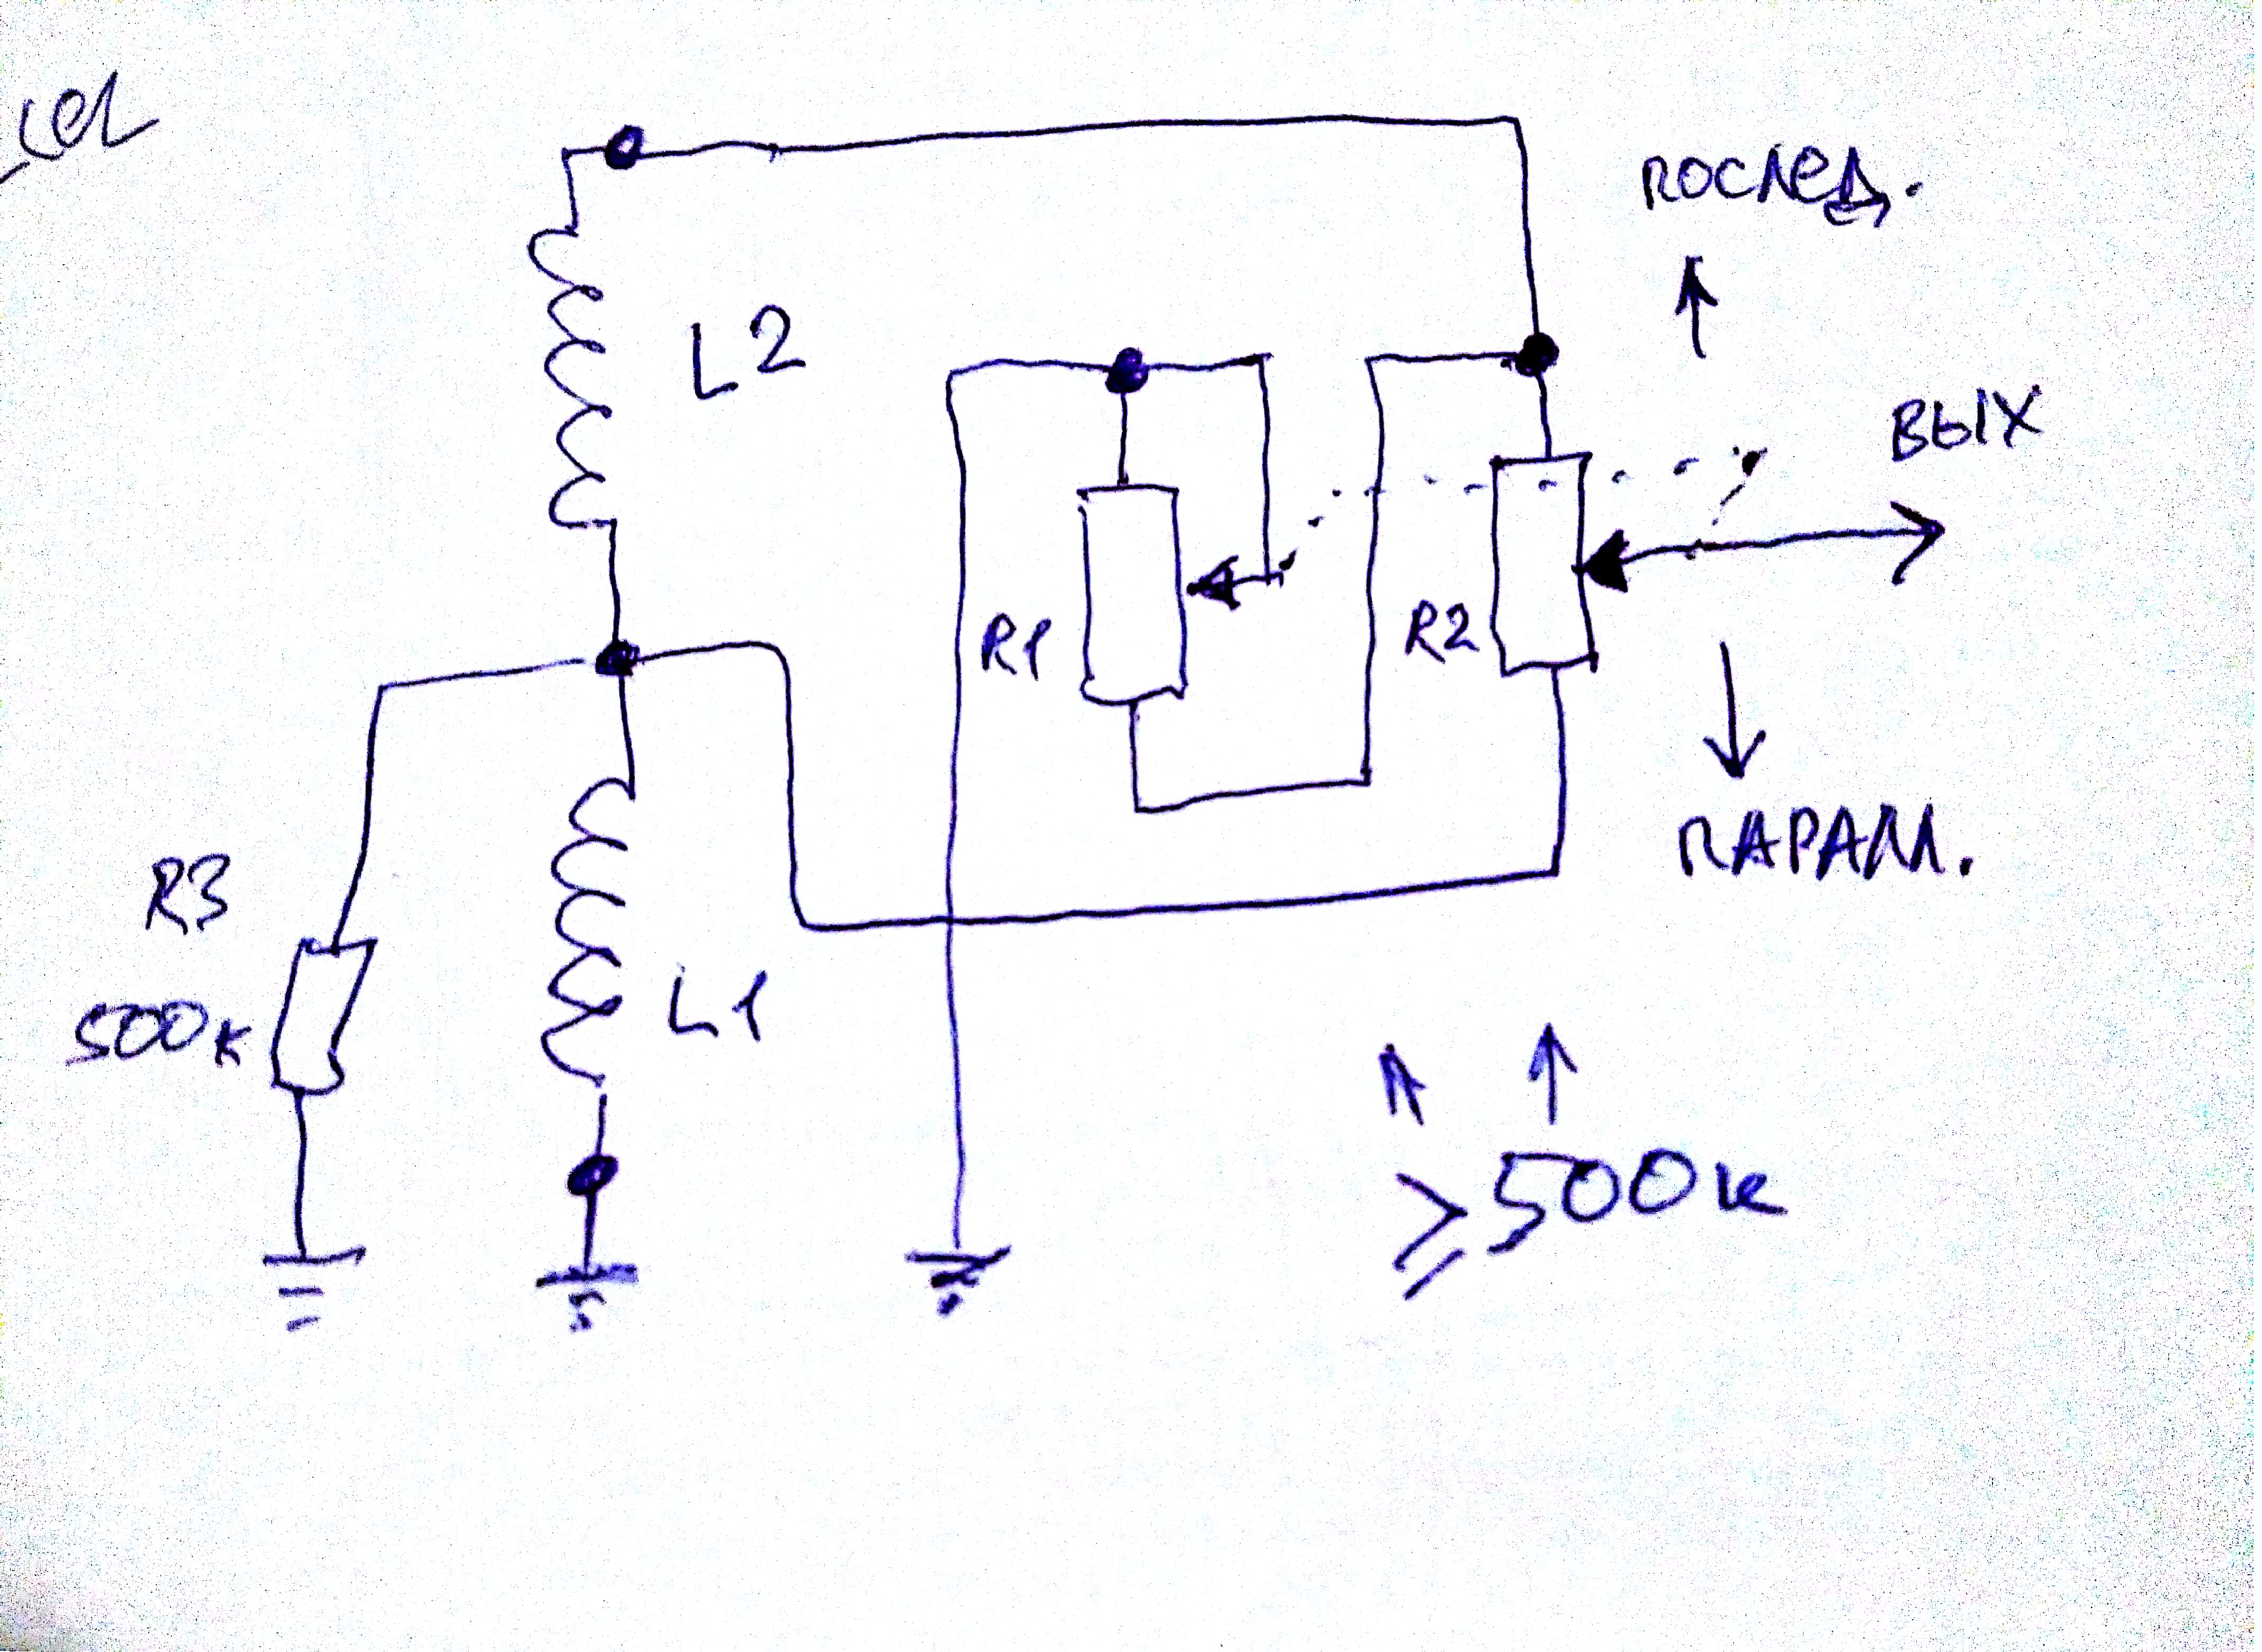 ПОСЛЕД.
L2
ВЫХ
R1
R2
ПАРАЛ.
R3
500к
L1
≥500к